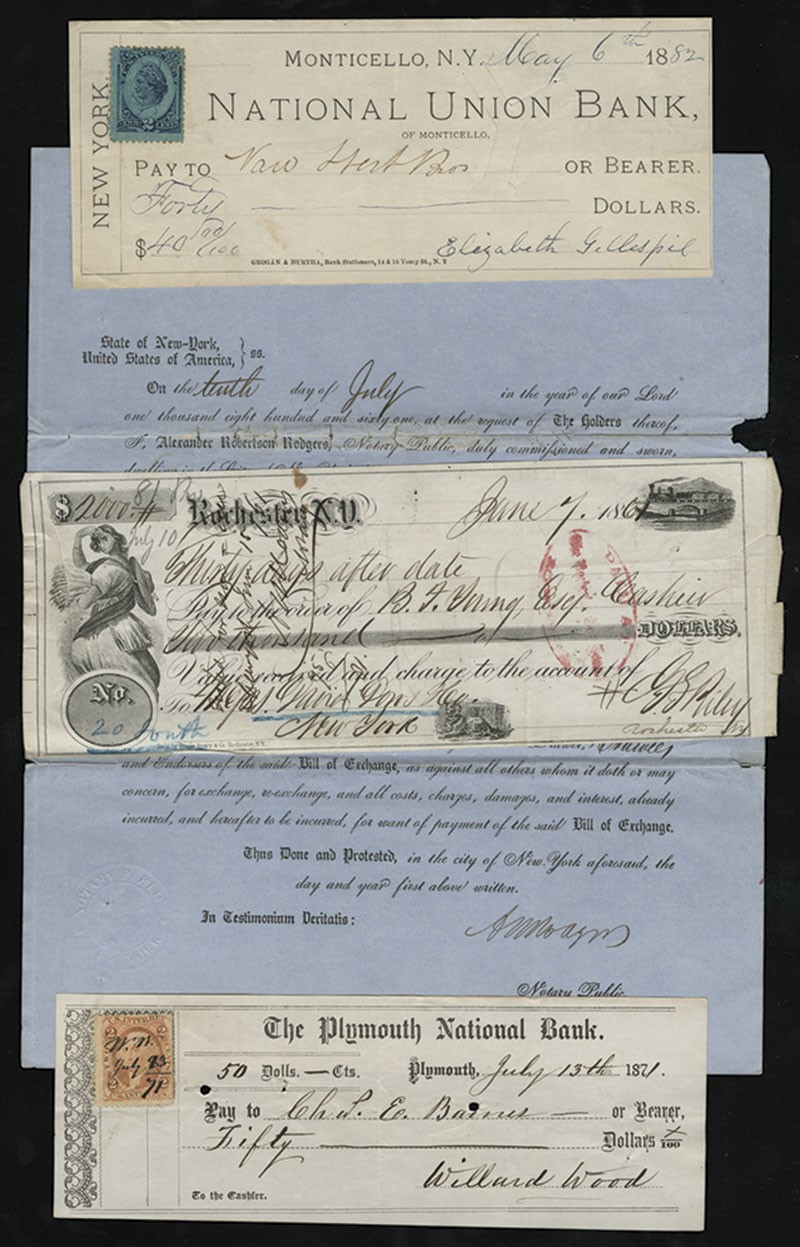 NEW YORK.
2
MONTICELLO, N.Y. May 6th 1882
NATIONAL UNION BANK,
OF MONTICELLO.
PAY TO Van Bros OR BEARER.
Forty DOLLARS.
$40 00/100 Elizabeth Gillespie
GROGAN & MURTHA, Bank Stationers, 14 & 16 Vesey St., N. Y
State of New-York,
United States of America, } ss.
On the tenth day of July in the year of our Lord
one thousand eight hundred and sixty one, at the request of The Holders thereof,
I, Alexander Robertson Rodgers, Notary Public, duly commissioned and sworn,
dwelling in the City
$2000.
July 10
Rochester N.Y. June 7. 1861
Thirty days after date
Pay to the order of B. F. Young, Esq. Cashier
Two thousand DOLLARS.
Value received and charge to the account of
No. To Co.
20 South New York Rochester
and Endorsers of the said Bill of Exchange, as against all others whom it doth or may
concern, for exchange, re-exchange, and all costs, charges, damages, and interest, already
incurred, and hereafter to be incurred, for want of payment of the said Bill of Exchange.
Thus Done and Protested, in the city of New-York aforesaid, the
day and year first above written.
In Testimonium Veritatis:
Notary Public
The Plymouth National Bank.
W. W.
July 13
71
50 Dolls. — Cts. Plymouth, July 13th 1871.
Pay to Chs. E. Barnes or Bearer,
Fifty Dollars /100
Willard Wood
To the Cashier.